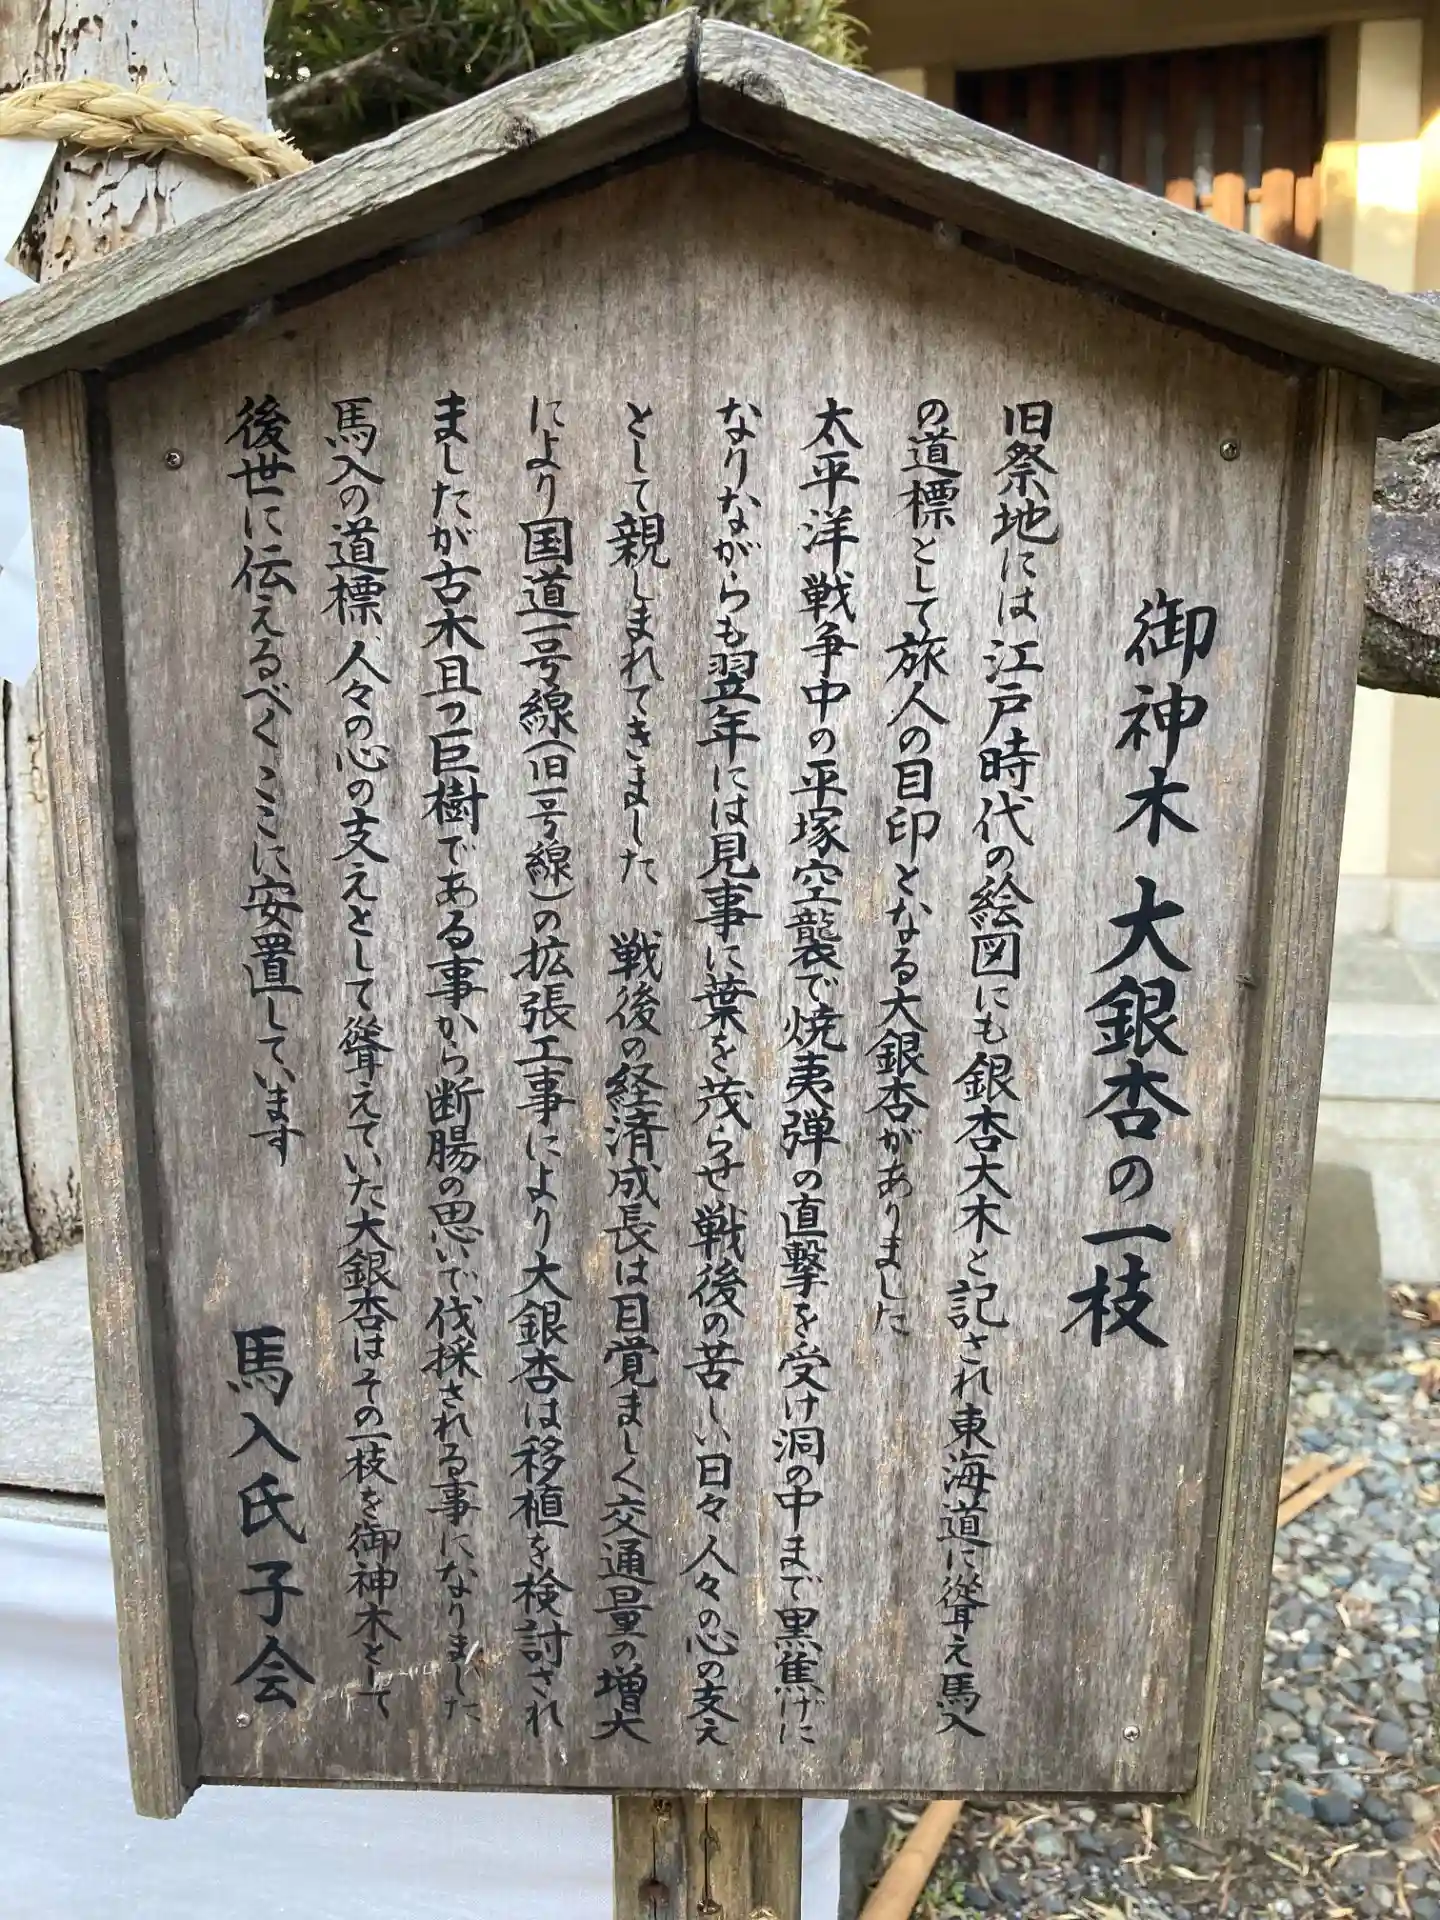 御神木 大銀杏の一枝
旧祭地には江戸時代の絵図にも銀杏大木と記され東海道に聳え馬入
の道標として旅人の目印となる大銀杏がありました
太平洋戦争中の平塚空襲で焼夷弾の直撃を受け洞の中まで黒焦げに
なりながらも翌年には見事に葉を茂らせ戦後の苦しい日々人々の心の支え
として親しまれてきました 戦後の経済成長は目覚ましく交通量の増大
により国道一号線(旧一号線)の拡張工事により大銀杏は移植を検討され
ましたが古木且つ巨樹である事から断腸の思いで伐採される事になりました
馬入の道標、人々の心の支えとして聳えていた大銀杏はその一枝を御神木として
後世に伝えるべくここに安置しています
馬入氏子会